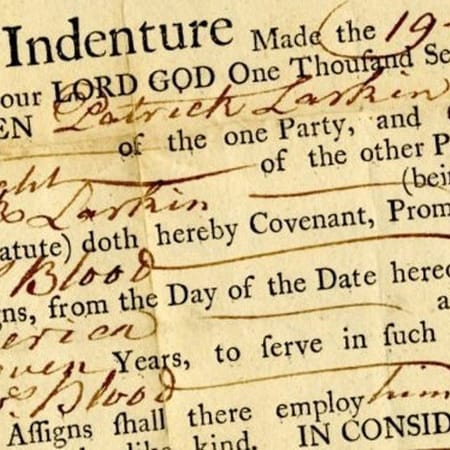 Indenture Made the 19
our LORD GOD One Thouſand Se
EN Patrick Larkin
of the one Party, and
ght of the other P
Larkin (bein
atute) doth hereby Covenant, Prom
Blood
gns, from the Day of the Date hereo
erica a
even Years, to ſerve in ſuch
Blood
Aſſigns ſhall there employ him
like kind. IN CONSID